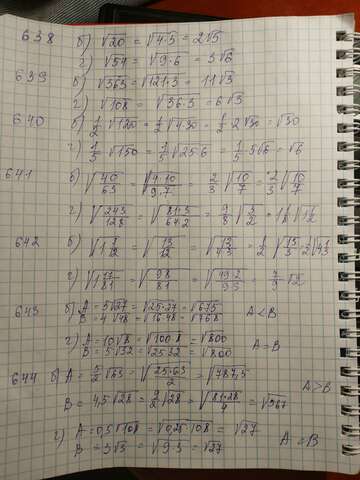 638 б) √20 = √4·5 = 2√5
г) √54 = √9·6 = 3√6
639 б) √363 = √121·3 = 11√3
г) √108 = √36·3 = 6√3
640 б) 1/2 √120 = 1/2 √4·30 = 1/2 · 2√30 = √30
г) 1/5 √150 = 1/5 √25·6 = 1/5 · 5√6 = √6
641 б) √40/63 = √4·10/9·7 = 2/3 √10/7 = 2/3 √10/7
г) √243/128 = √81·3/64·2 = 9/8 √3/2 =
642 б) = √13/12 = √13/4·3 = 1/2 √13/3 =
г) √1 17/81 = √98/81 = √49·2/9·9 = 7/9 √2
643 б) A = 5√27 = √25·27 = √675
B = 4√48 = √16·48 = √768 A < B
г) A = 10√8 = √100·8 = √800
B = 5√32 = √25·32 = √800 A = B
644 б) A = √63 = √25·63/2 = √787,5
B = 4,5√28 = 9/2 √28 = √81·28/4 = √567 A > B
г) A = 0,5√108 = √0,25·108 = √27
B = 3√3 = √9·3 = √27 A = B